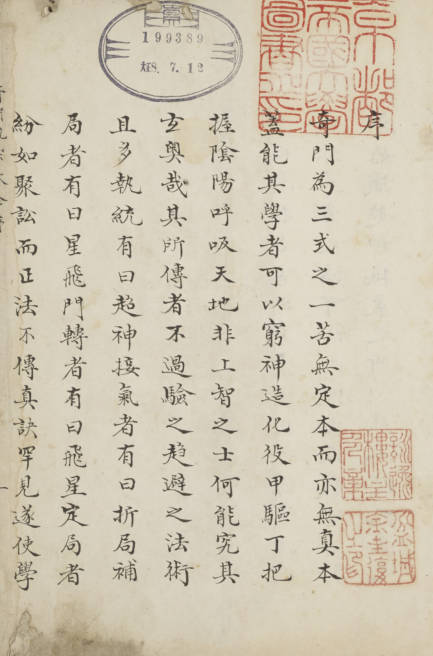 序
奇門為三式之一苦無定本而亦無真本
蓋能其學者可以窮神造化役甲驅丁把
握陰陽呼吸天地非上智之士何能究其
玄奥哉其所傳者不過驗之趨避之法術
且多執統有曰超神接氣者有曰折局補
局者有曰星飛門轉者有曰飛星定局者
紛如聚訟而正法不傳真訣罕見遂使學
一
199389
大正8.7.12
京都
帝國大學
圖書之印